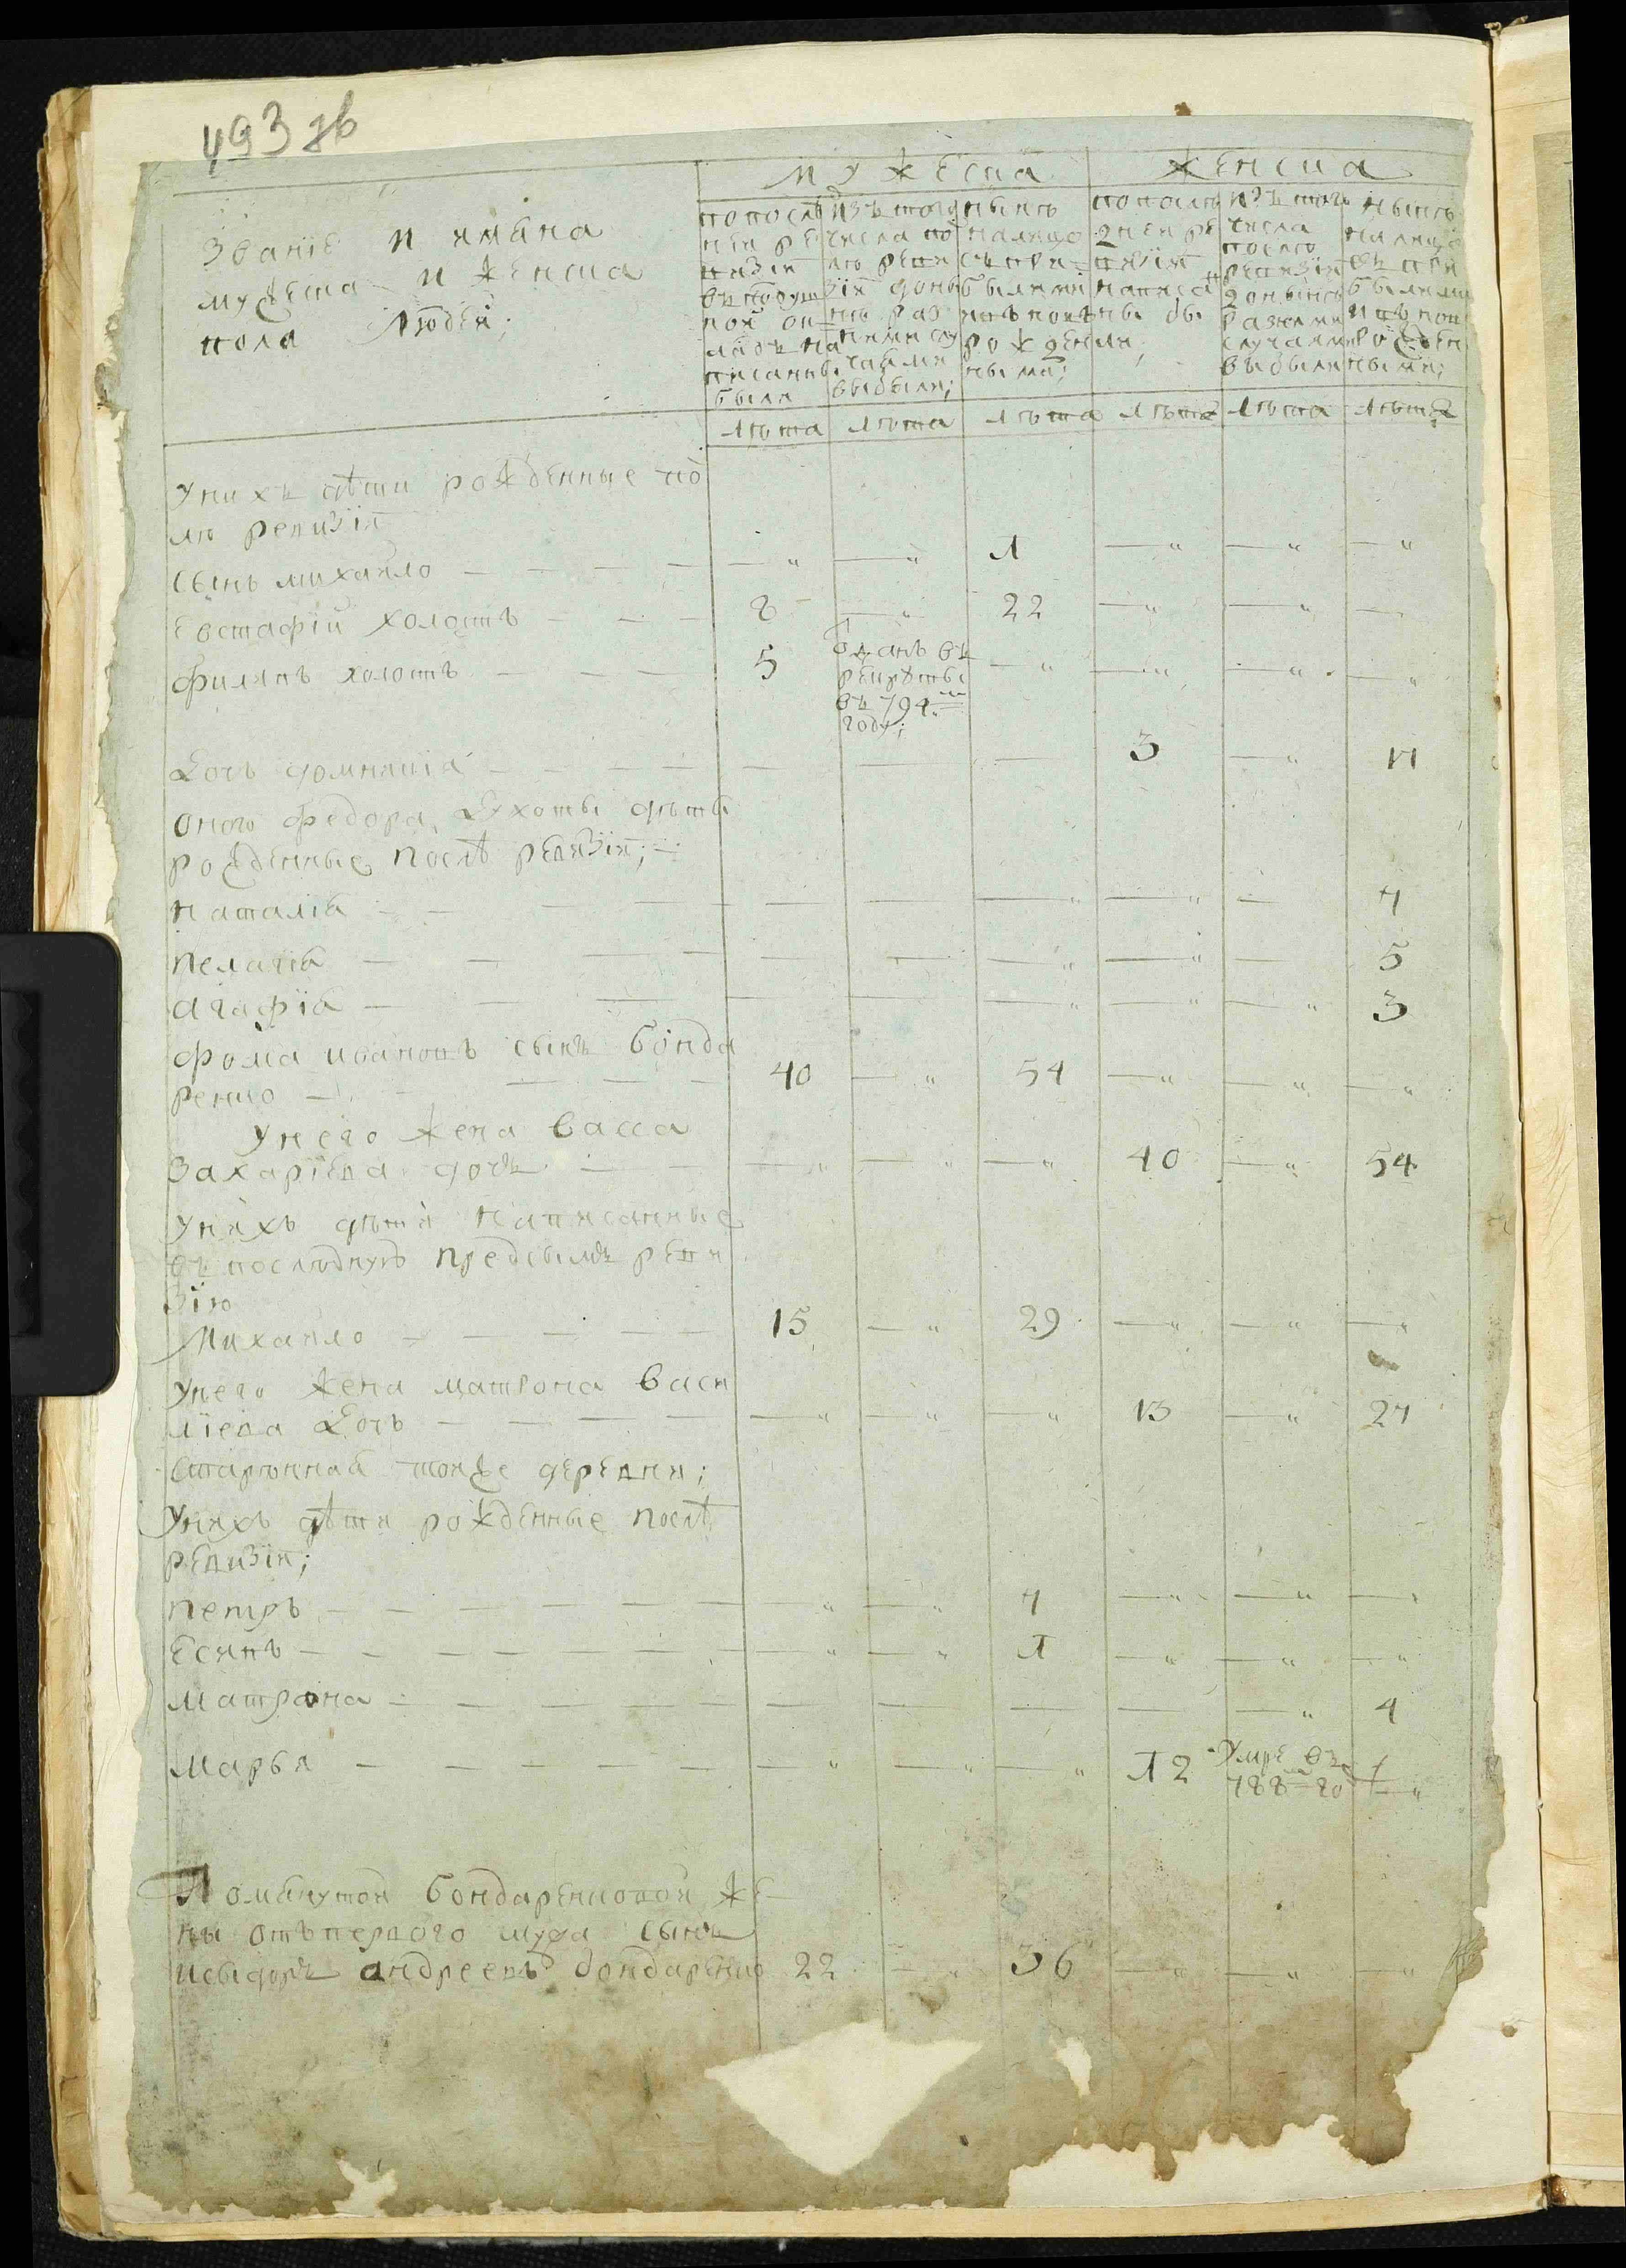 493 зв
мужеска женска
званїе и имѣна
мужеска и женска
пола людеи;
попослѣ
неи ре
визїи
въ подуш
нои ок
ладъ на
писаны
были
изъ того
числа по
лѣ реви
зїи доны
нѣ раз
ними слу
чаями
выбыли;
нынѣ
налицо
съ при
былими
ивъновь
рожден
ными;
попослѣ
днеи ре
визїи
написа
ны бы
ли;
изъ того
числа
послѣ
ревизїи
донынѣ
разными
случаями
выбыли
нынѣ
налицо
съ при
былими
ивънов
рожден
ными;
лѣта лѣта лѣта лѣта лѣта лѣта
унихъ дѣти рожденные по
лѣ ревизїи
сынъ михаило — — — — — „ — „ 1 — „ — „ — „
евстафїй холостъ — — — 8 — „ 22 — „ — „ —
филипъ холостъ — — — 5 отданъ въ — „ — „ — „ — „
рекруты
въ 794.м
году;
дочь домникїа — — — — — — — 3 — „ 17
оного федора духоты дѣты
рожденные послѣ ревизїи;
наталїа — — — — — — — „ — „ — 7
пелагїа — — — — — — — „ — „ — 5
агафїа — — — — — — „ — „ — „ 3
фома ивановъ сынъ бонда
ренко — — — — 40 — „ 54 — „ — „ — „
унего жена васса
захарїева дочъ — — „ — „ — „ 40 — „ 54
унихъ дѣти написанные
въ послѣднуюю предсымъ реви
зїю
михаило — — — — — 15 — „ 29 — „ — „ — „
унего жена матрона васи
лїева дочь — — — — — „ — „ — „ 13 — „ 27
старинная тоиже деревни;
унихъ дѣти рожденные послѣ
ревизїи;
петръ — — — — — — — „ — „ 7 — „ — „ —
есипъ — — — — — — — „ — „ 1 — „ — „ — „
матрона — — — — — — — — — — — „ 4
марья — — — — — — — „ — „ — „ 12 умре въ — „
788 го
помянутой бондаренковои же
ны отъ первого мужа сынъ
исидоръ андреевъ бондаренко 22 — „ 36 — „ — „ — „